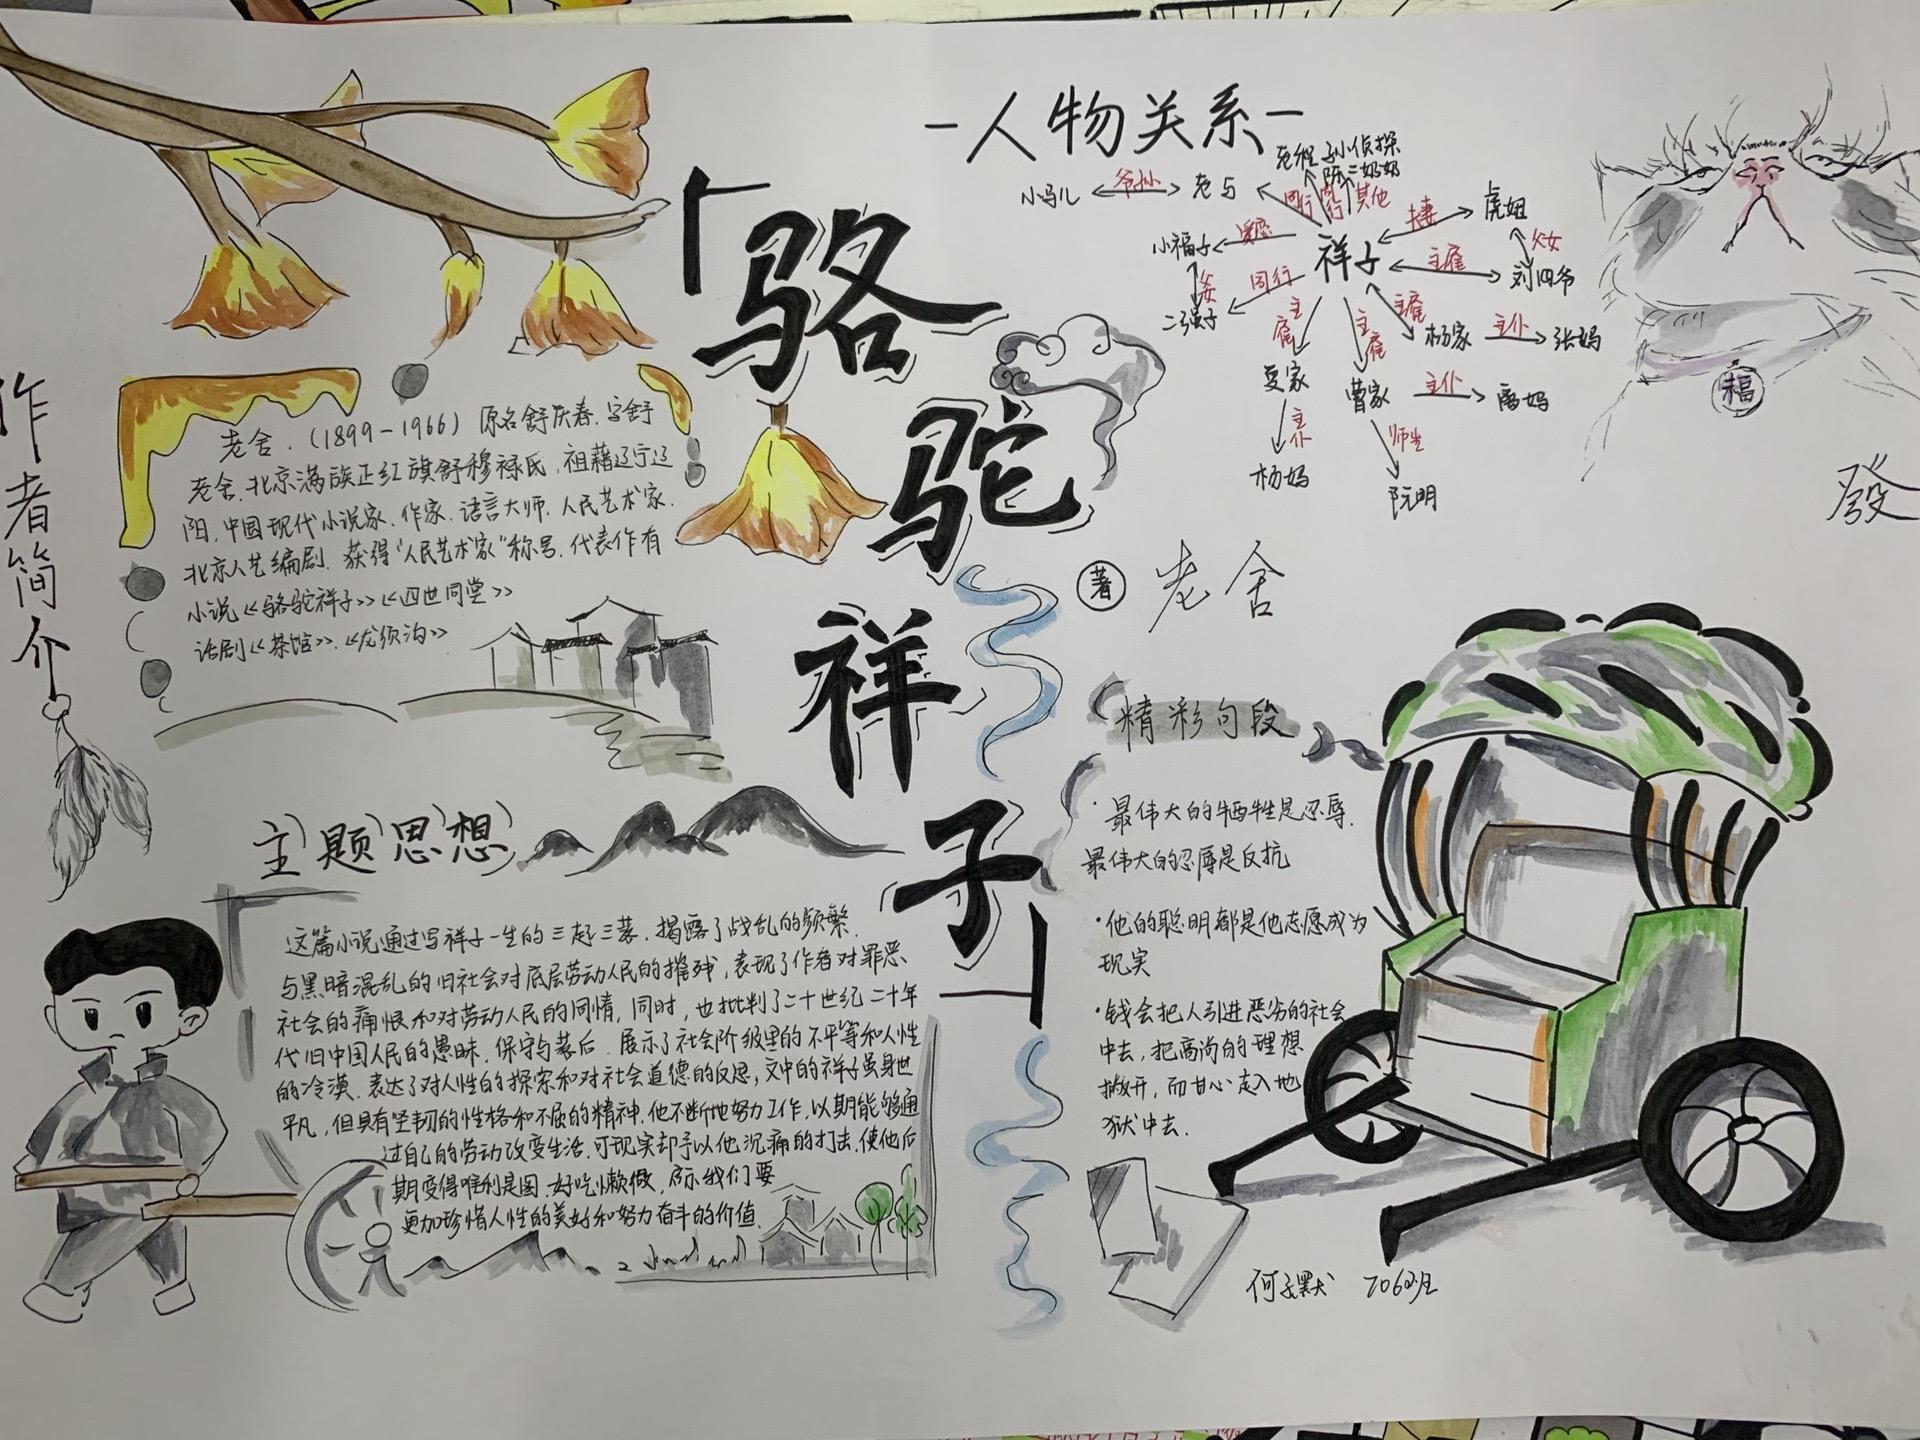 作者简介
老舍.(1899-1966)原名舒庆春.字舒
老舍.北京满族正红旗舒穆禄氏,祖籍辽宁辽
阳.中国现代小说家、作家.语言大师.人民艺术家.
北京人艺编剧.获得“人民艺术家”称号.代表作有
小说《骆驼祥子》《四世同堂》
话剧《茶馆》.《龙须沟》
「骆驼祥子」
著 老舍
-人物关系-
小马儿 爷孙 老马
老程 孙小侦探
陈二奶奶
同行 其他
夫妻 虎妞
父女
小福子
祥子 主雇 刘四爷
二强子 同行
主雇 主雇 主雇
杨家 主仆 张妈
夏家 曹家 主仆 高妈
主仆 师生
杨妈 阮明
福
發
主题思想
这篇小说通过写祥子一生的三起三落.揭露了战乱的频繁.
与黑暗混乱的旧社会对底层劳动人民的摧残,表现了作者对罪恶
社会的痛恨和对劳动人民的同情,同时,也批判了二十世纪二十年
代旧中国人民的愚昧.保守与落后.展示了社会阶级里的不平等和人性
的冷漠.表达了对人性的探索和对社会道德的反思,文中的祥子虽身世
平凡,但具有坚韧的性格和不屈的精神.他不断地努力工作.以期能够通
过自己的劳动改变生活.可现实却予以他沉痛的打击.使他后
期变得唯利是图.好吃懒做.启示我们要
更加珍惜人性的美好和努力奋斗的价值.
精彩句段
·最伟大的牺牲是忍辱.
最伟大的忍辱是反抗
·他的聪明都是他志愿成为
现实
·钱会把人引进恶劣的社会
中去,把高尚的理想
撇开,而甘心走入地
狱中去.
何子默 706班